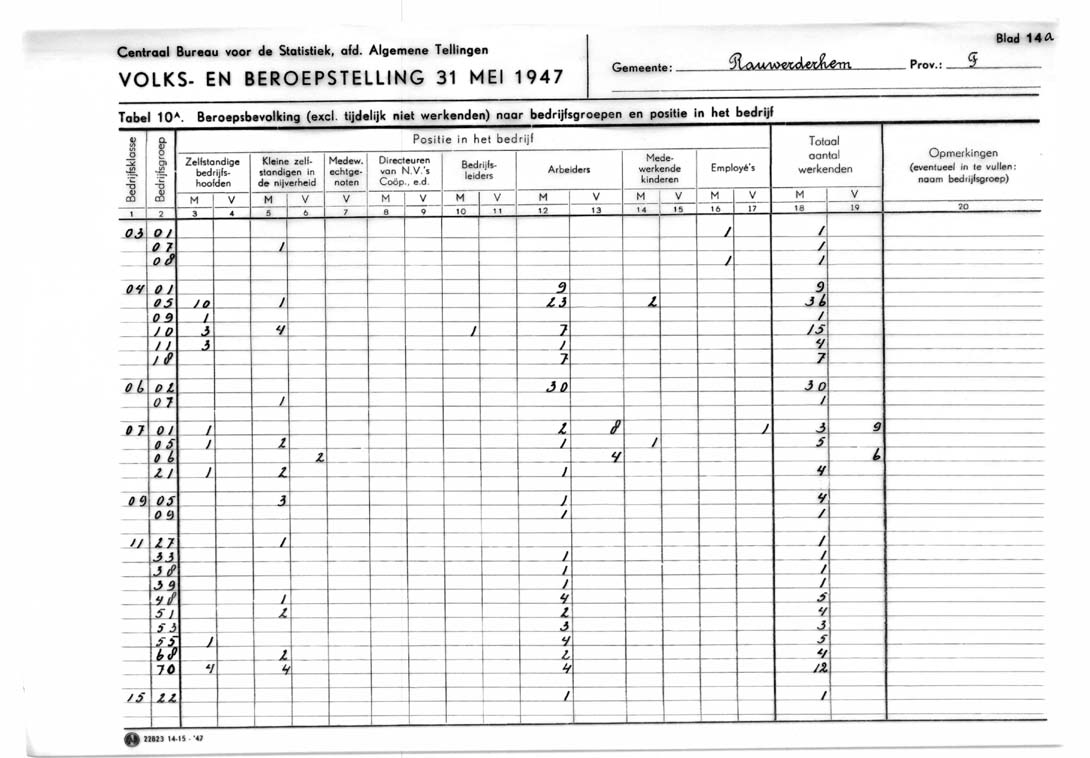 Centraal Bureau voor de Statistiek, afd. Algemene Tellingen
VOLKS- EN BEROEPSTELLING 31 MEI 1947
Blad 14a
Gemeente: Rauwerderhem Prov.: F
Tabel 10A. Beroepsbevolking (excl. tijdelijk niet werkenden) naar bedrijfsgroepen en positie in het bedrijf
Bedrijfsklasse
Bedrijfsgroep
Positie in het bedrijf
Zelfstandige bedrijfs-hoofden
Kleine zelf-standigen in de nijverheid
Medew. echtge-noten
Directeuren van N.V.'s Coöp., e.d.
Bedrijfs-leiders
Arbeiders
Mede-werkende kinderen
Employé's
Totaal aantal werkenden
Opmerkingen (eventueel in te vullen: naam bedrijfsgroep)
M V M V V M V M V M V M V M V M V
1 2 3 4 5 6 7 8 9 10 11 12 13 14 15 16 17 18 19 20
03 01 1 1
07 1 1
08 1 1
04 01 9 9
05 10 1 23 2 36
09 1 1
10 3 4 1 7 15
11 3 1 4
18 7 7
06 02 30 30
07 1 1
07 01 1 2 8 1 3 9
05 1 2 1 1 5
06 2 4 6
21 1 2 1 4
09 05 3 1 4
09 1 1
11 27 1 1
33 1 1
38 1 1
39 1 1
48 1 4 5
51 2 2 4
53 3 3
55 1 4 5
68 2 2 4
70 4 4 4 12
15 22 1 1
22823 14-15-'47